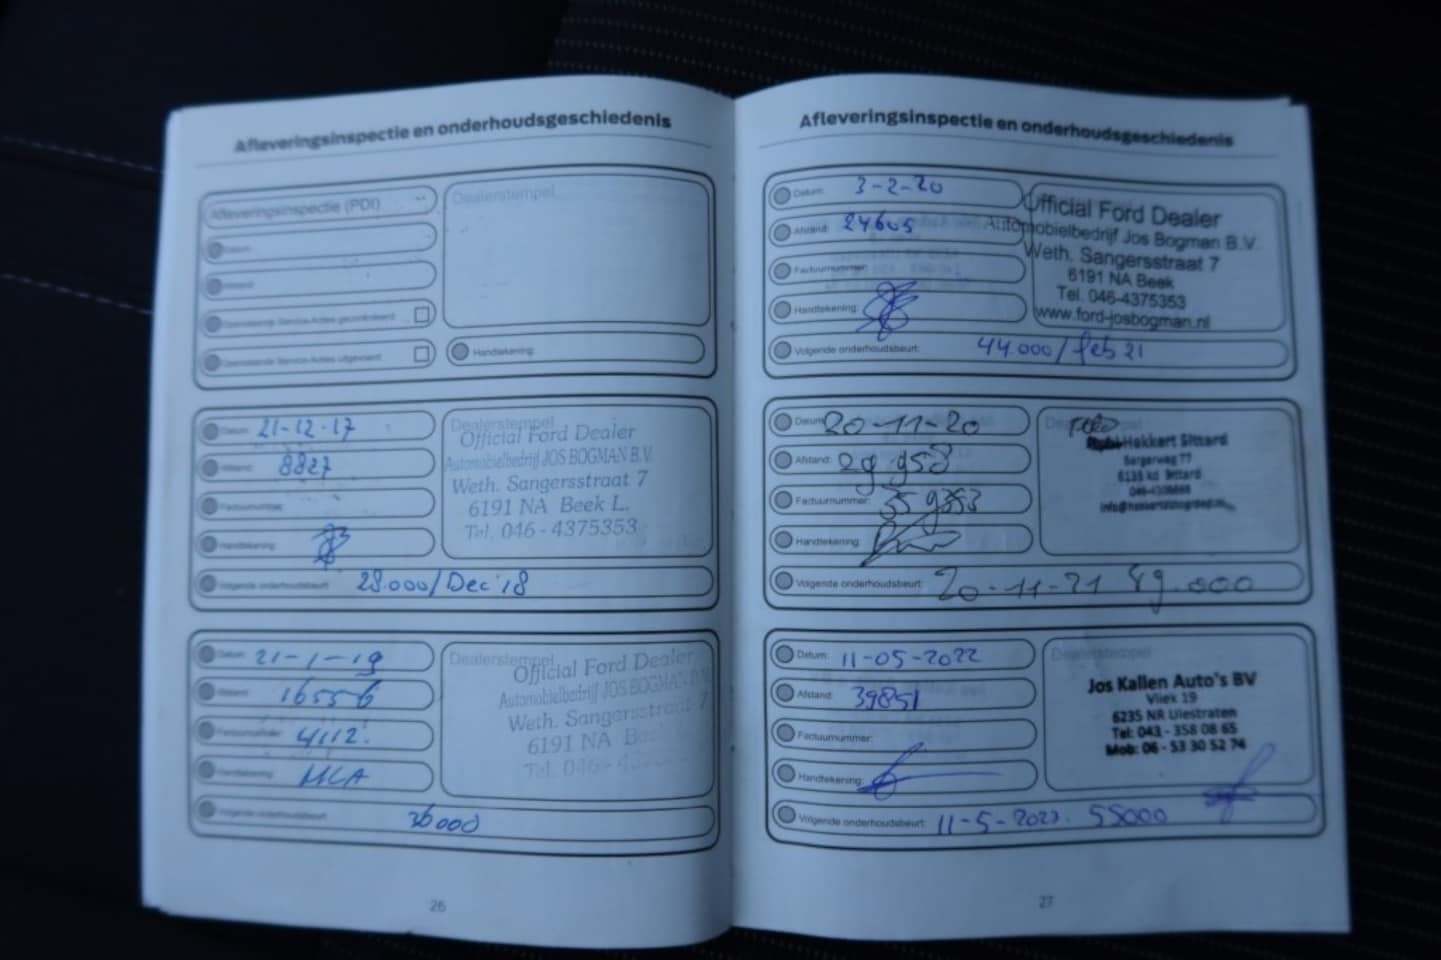 Afleveringsinspectie en onderhoudsgeschiedenis
Afleveringsinspectie (PDI)
Dealerstempel
Datum:
Afstand:
Openstaande Service-Acties gecontroleerd
Openstaande Service-Acties uitgevoerd
Handtekening:
Datum: 21-12-17
Afstand: 8827
Factuurnummer:
Handtekening:
Dealerstempel
Official Ford Dealer
Automobielbedrijf JOS BOGMAN B.V.
Weth. Sangersstraat 7
6191 NA Beek L.
Tel. 046 - 4375353
Volgende onderhoudsbeurt: 28.000/Dec'18
Datum: 21-1-19
Afstand: 16556
Factuurnummer: 4112.
Handtekening: MCA
Dealerstempel
Official Ford Dealer
Automobielbedrijf JOS BOGMAN
Weth. Sangersstraat 7
6191 NA
Tel. 046 -
Volgende onderhoudsbeurt: 36000
26
Afleveringsinspectie en onderhoudsgeschiedenis
Datum: 3-2-20
Afstand: 24605
Factuurnummer:
Handtekening:
Official Ford Dealer
Automobielbedrijf Jos Bogman B.V.
Weth. Sangersstraat 7
6191 NA Beek
Tel. 046-4375353
www.ford-josbogman.nl
Volgende onderhoudsbeurt: 44.000/feb 21
Datum: 20-11-20
Afstand: 29 953
Factuurnummer: 559353
Handtekening:
Hekkert Sittard
Volgende onderhoudsbeurt: 20-11-21 49.000
Datum: 11-05-2022
Afstand: 39851
Factuurnummer:
Handtekening:
Dealerstempel
Jos Kallen Auto's BV
Vliek 19
6235 NR Ulestraten
Tel: 043 - 358 08 65
Mob: 06 - 53 30 52 74
Volgende onderhoudsbeurt: 11-5-2023. 55000
27